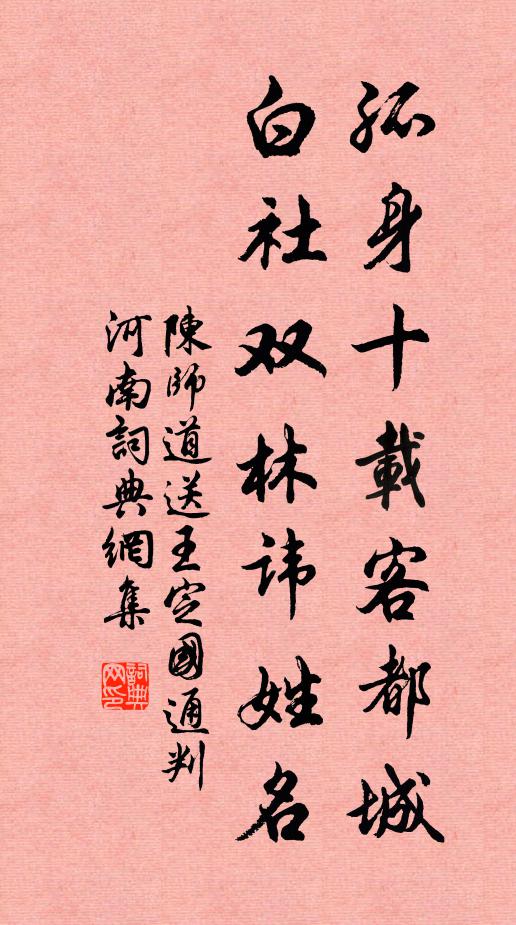 孤身十載客都城
白社双林讳姓名
陳師道送王定國通判
河南詞典網集
詞典网印